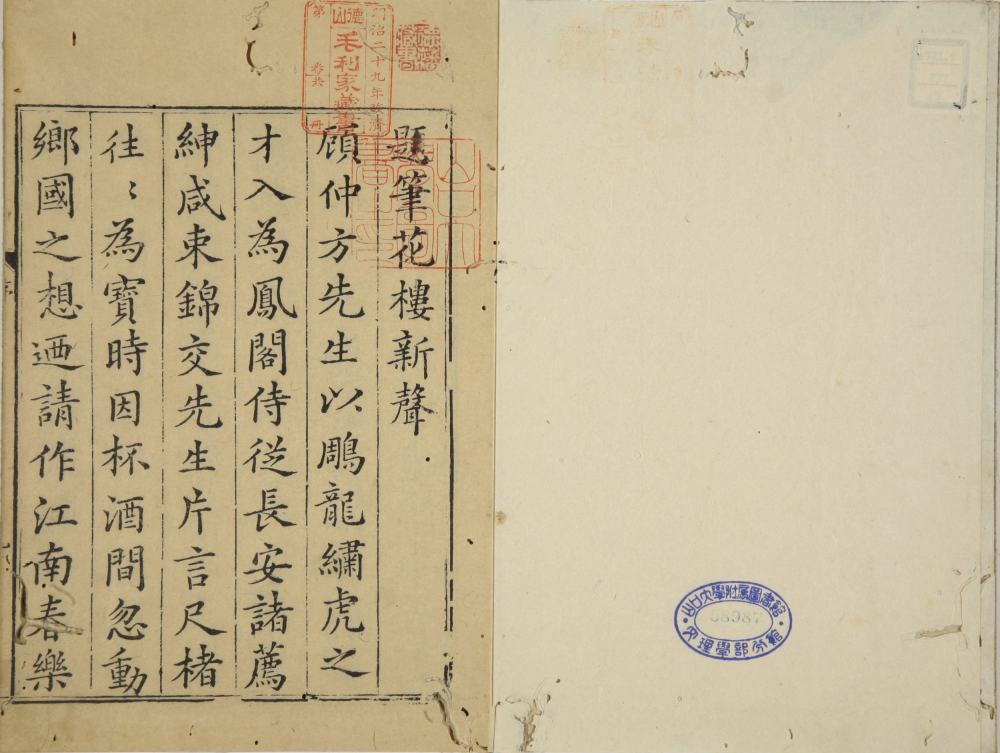 題筆花樓新聲
顧仲方先生以雕龍繡虎之
才入為鳳閣侍從長安諸薦
紳咸束錦交先生片言尺楮
往〻為寳時因杯酒間忽動
鄉國之想迺請作江南春樂
明治二十九年改濟
德山
毛利家藏書
第
卷共
冊
山口大學附屬圖書館
68987
文理學部分館